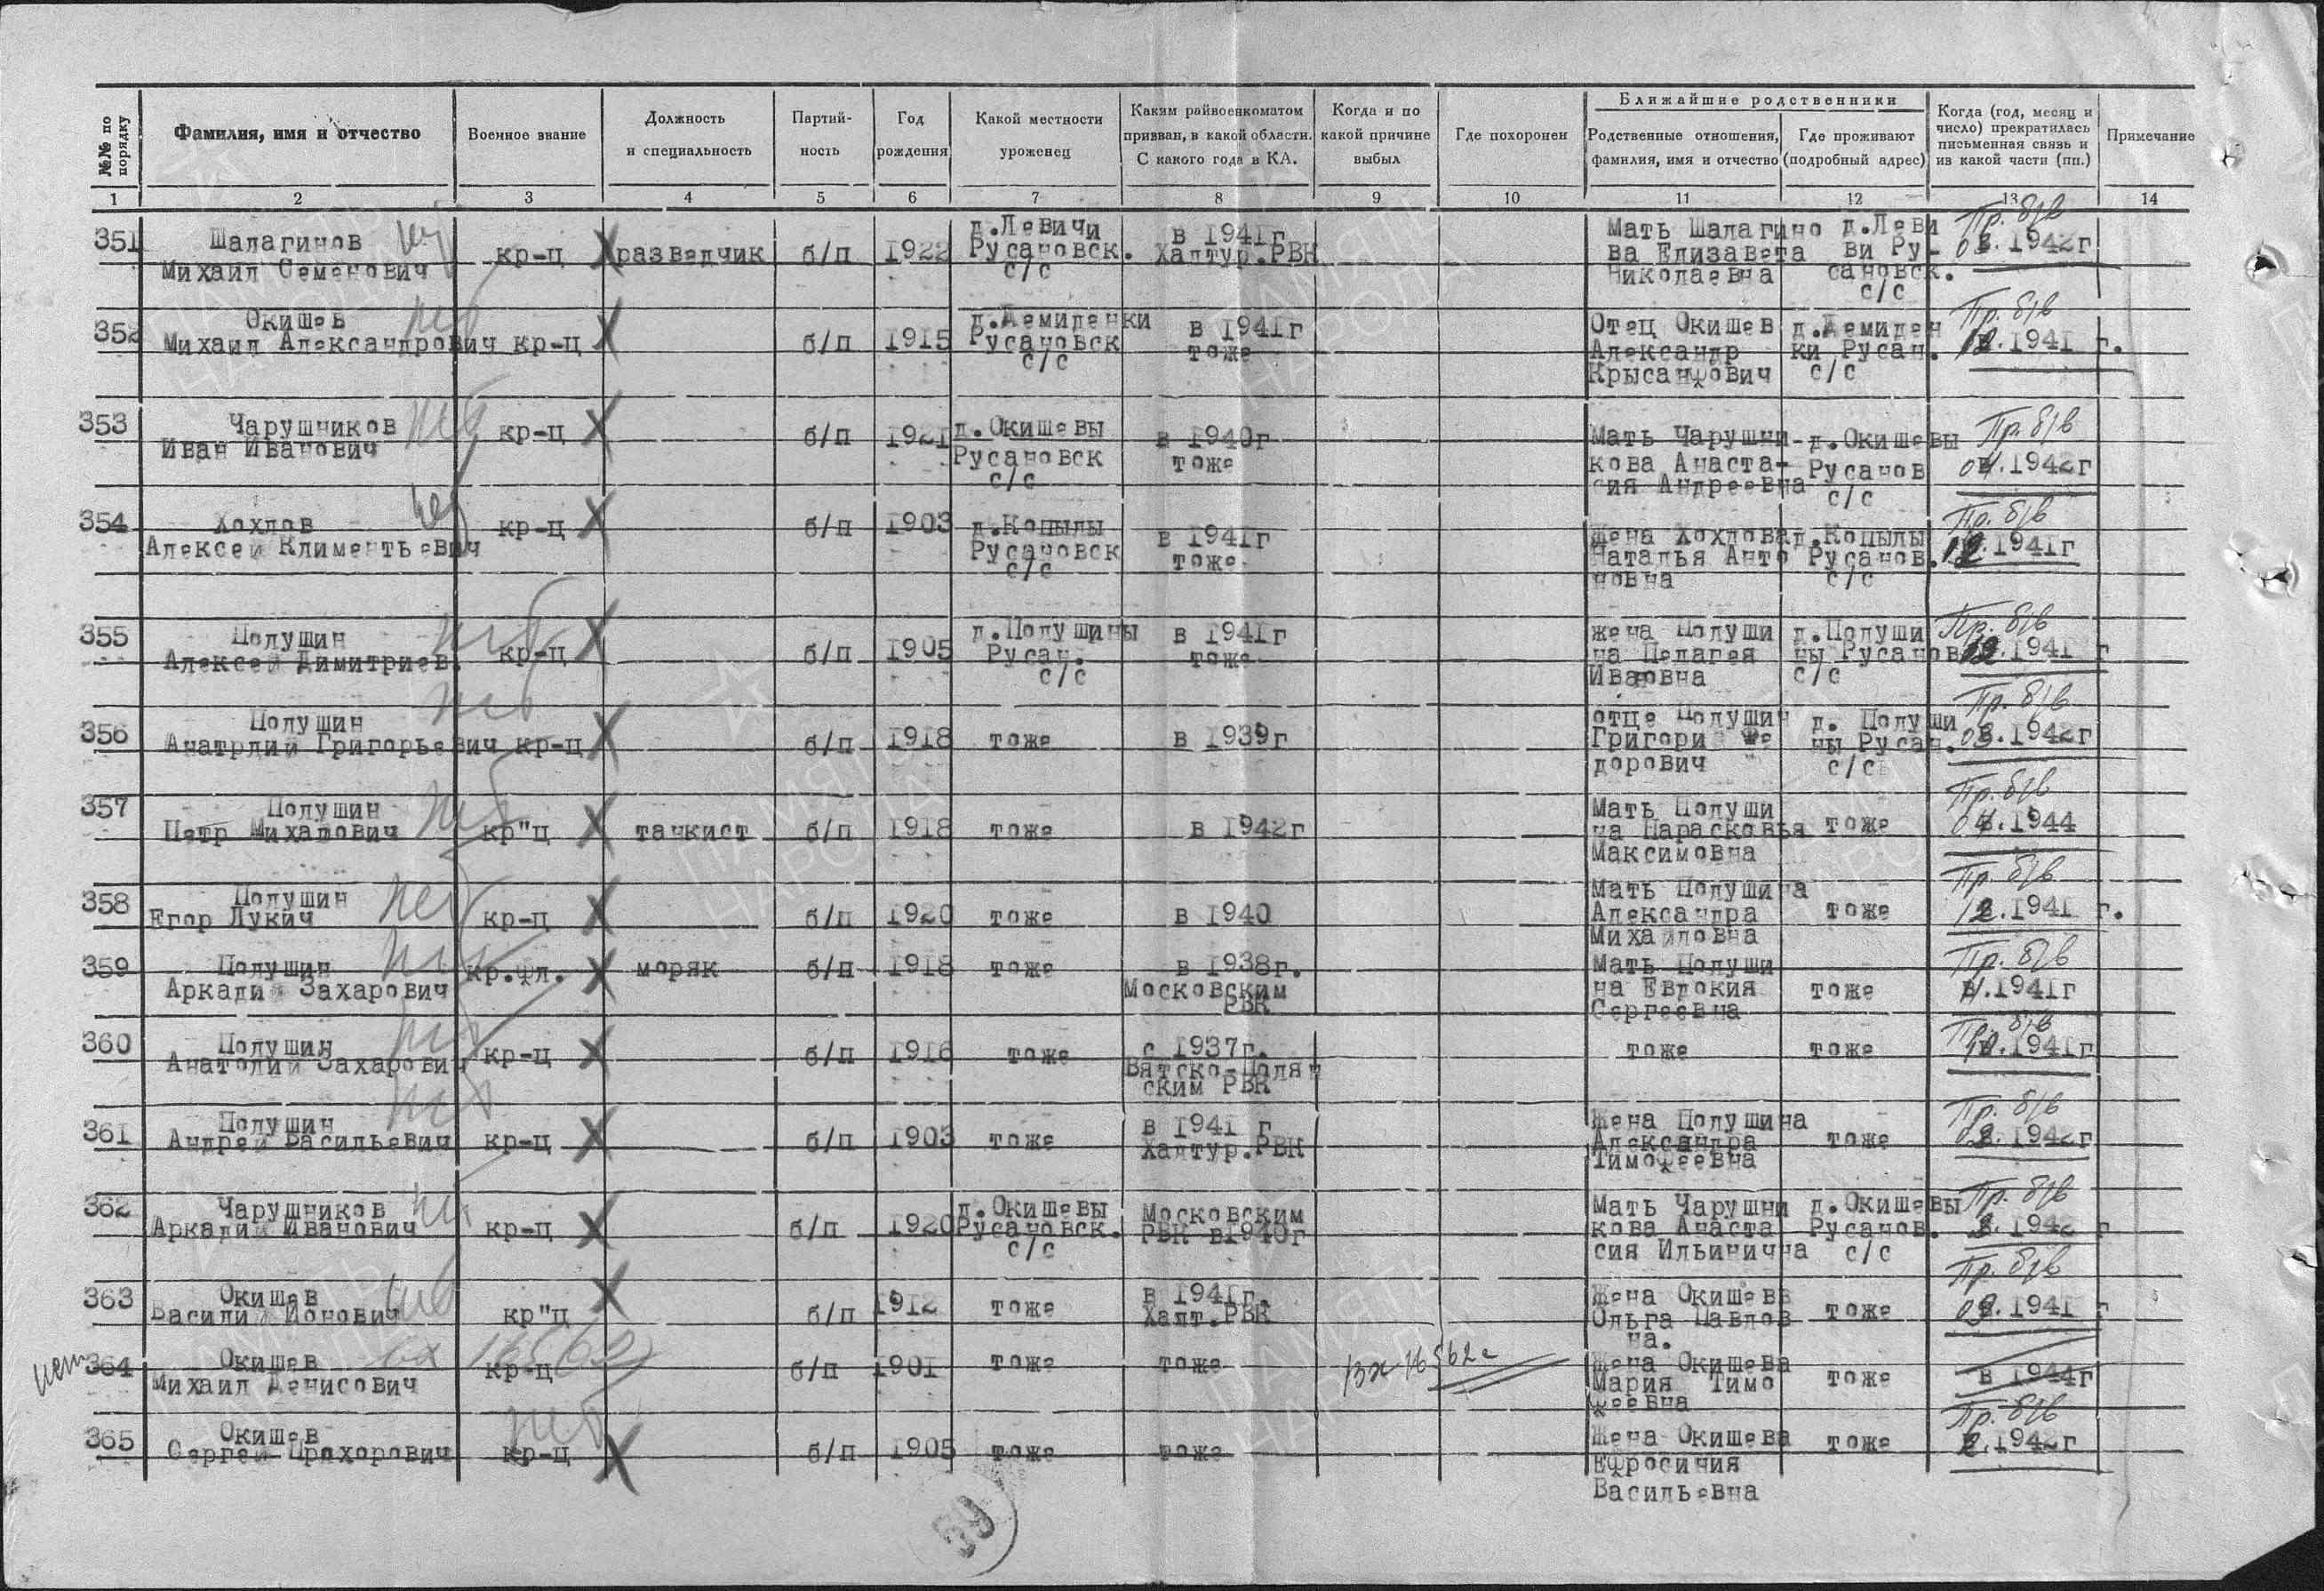 №№ по порядку
Фамилия, имя и отчество
Военное звание
Должность и специальность
Партий-ность
Год рождения
Какой местности уроженец
Каким райвоенкоматом призван, в какой области. С какого года в КА.
Когда и по какой причине выбыл
Где похоронен
Ближайшие родственники
Родственные отношения, фамилия, имя и отчество
Где проживают (подробный адрес)
Когда (год, месяц и число) прекратилась письменная связь и из какой части (пп.)
Примечание
1 2 3 4 5 6 7 8 9 10 11 12 13 14
351 Шалагинов Михаил Семенович кр-ц разведчик б/п 1922 д.Левичи Русановск. с/с в 1941г Халтур.РВК Мать Шалагино ва Елизавета Николаевна д.Леви ви Ру- сановск. с/с Пр. б/в 1942г
352 Окишев Михаил Александрович кр-ц б/п 1915 д.Демиденки Русановск с/с в 1941г тоже Отец Окишев Александр Крысанфович д.Демиден ки Русан. с/с Пр. б/в 12.1941 г.
353 Чарушников Иван Иванович кр-ц б/п 1921 д.Окишевы Русановск с/с в 1940г тоже Мать Чарушни- кова Анаста- сия Андреевна д.Окишевы Русанов с/с Пр. б/в 1942г
354 Хохлов Алексей Климентьевич кр-ц б/п 1903 д.Копылы Русановск с/с в 1941г тоже жена Хохлова Наталья Анто новна д.Копылы Русанов. с/с Пр. б/в 12.1941г
355 Полушин Алексей Димитриев. кр-ц б/п 1905 д.Полушины Русан. с/с в 1941г тоже жена Полуши на Пелагея Ивановна д.Полуши ны Русанов с/с Пр. б/в 1941 г
356 Полушин Анатрлий Григорьевич кр-ц б/п 1918 тоже в 1939г отце Полушин Григори Фе дорович д. Полуши ны Русан. с/с Пр. б/в 03.1942г
357 Полушин Петр Михалович кр"ц танкист б/п 1918 тоже в 1942г Мать Полуши на Парасковья Максимовна тоже Пр. б/в 04.1944
358 Полушин Егор Лукич кр-ц б/п 1920 тоже в 1940 Мать Полушина Александра Михаиловна тоже Пр. б/в 12.1941 г.
359 Полушин Аркадий Захарович кр.фл. моряк б/п 1918 тоже в 1938г. Московским РВК Мать Полуши на Евдокия Сергеевна тоже Пр. б/в 1941г
360 Полушин Анатолий Захарови кр-ц б/п 1916 тоже с 1937г. Вятско-Полян ским РВК тоже тоже Пр. б/в 1941г
361 Полушин Андрей Васильевич кр-ц б/п 1903 тоже в 1941 г Халтур.РВК Жена Полушина Александра Тимофеевна тоже Пр. б/в 1942г
362 Чарушников Аркадий Иванович кр-ц б/п 1920 д.Окишевы Русановск. с/с Московским РВК в1940г Мать Чарушни кова Анаста сия Ильинична д.Окишевы Русанов. с/с Пр. б/в 1942 г
363 Окишев Василий Ионович кр"ц б/п 1912 тоже в 1941г. Халт.РВК Жена Окишева Ольга Павлов на. тоже Пр. б/в 1941 г
нет 364 Окишев Михаил Денисович вх 16562 кр-ц б/п 1901 тоже тоже Вх 16562с Жена Окишева Мария Тимо феевна тоже в 1944г
365 Окишев Сергей Прохорович кр-ц б/п 1905 тоже тоже Жена Окишева Ефросиния Васильевна тоже Пр. б/в 2.1942г
59
ПАМЯТЬ НАРОДА